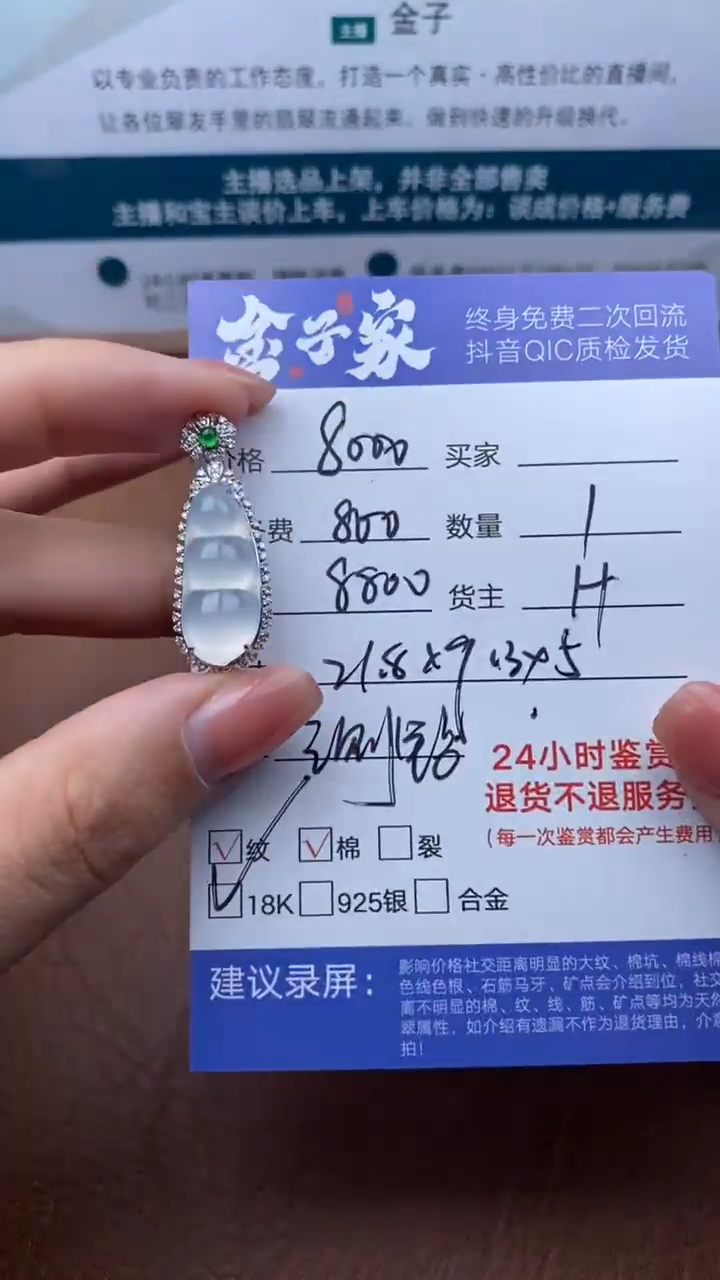 主播 金子
以专业负责的工作态度，打造一个真实·高性价比的直播间，
让各位翠友手里的翡翠流通起来，做到快速的升级换代。
主播选品上架，并非全部售卖
主播和宝主谈价上车，上车价格为：谈成价格+服务费
金子家
终身免费二次回流
抖音QIC质检发货
价格 8000 买家
费 800 数量 1
8800 货主 H
21.8×9.3×5
24小时鉴赏
退货不退服务
(每一次鉴赏都会产生费用
纹 棉 裂
18K 925银 合金
建议录屏：
影响价格社交距离明显的大纹、棉坑、棉线棉
色线色根、石筋马牙、矿点会介绍到位，社交
离不明显的棉、纹、线、筋、矿点等均为天然
翠属性，如介绍有遗漏不作为退货理由，介意
拍！